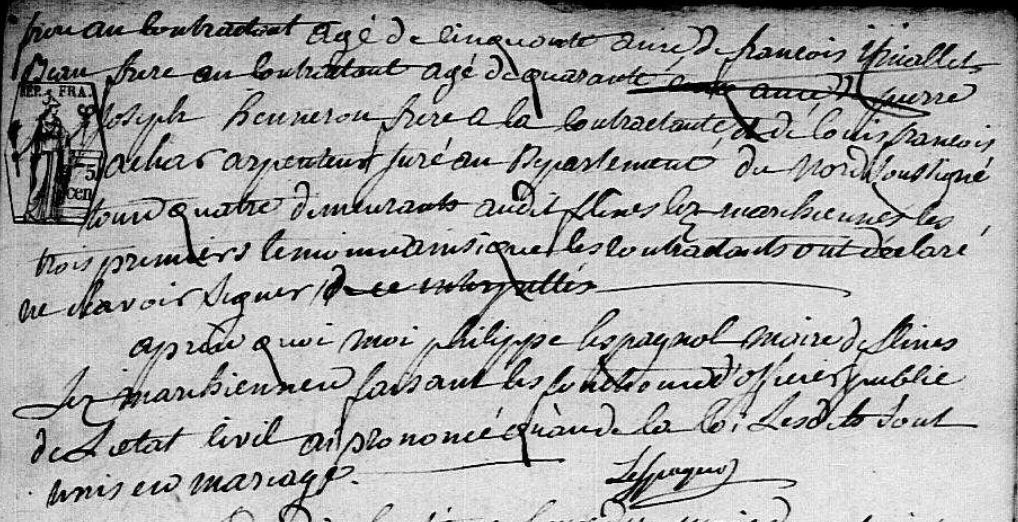 au contractant agé de cinquante ans de francois
Beau frere au contractant agé de quarante ans pierre
REP. FRA.
Joseph henneron frere a la contractante et de louis francois
5
cen
achar arpenteur juré au Departement du Nord soussigné
tous quatre demeurants audit flines lez marchiennes les
trois premiers temoins ainsi que les contractants ont declaré
ne scavoir signer de ce interpellés
apres quoi moi philippe lespagnol maire de flines
Lez marchiennes faisant les fonctions d'officier public
de L'etat civil ai prononcé qu'au de la loi Lesdits sont
unis en mariage.
Lespagnol